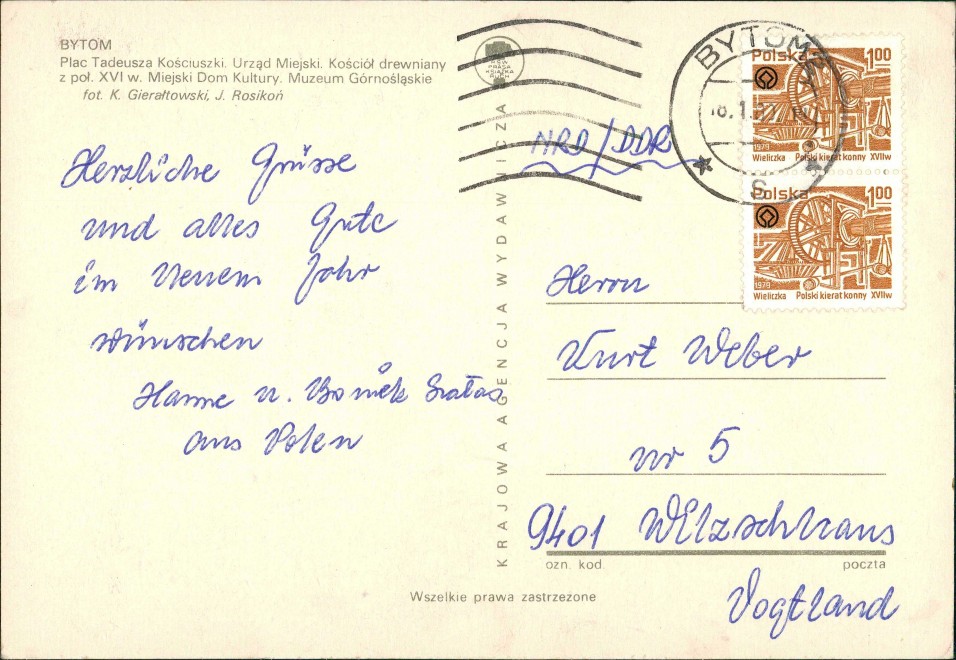 BYTOM
Plac Tadeusza Kościuszki. Urząd Miejski. Kościół drewniany
z poł. XVI w. Miejski Dom Kultury. Muzeum Górnośląskie
fot. K. Gierałtowski, J. Rosikoń
Herzliche Grüsse
und alles Gute
im Neuem Johr
wünschen
Hanne u. Bonik
aus Polen
KRAJOWA AGENCJA WYDAWNICZA
RSW
PRASA
KSIĄŻKA
RUCH
NRD/DDR
BYTOM
Polska 1,00
1979
Wieliczka Polski kierat konny XVIIw
Polska 1,00
1979
Wieliczka Polski kierat konny XVIIw
Herrn
Kurt Weber
nr 5
9401 Wilzschhaus
ozn. kod. poczta
Vogtland
Wszelkie prawa zastrzeżone